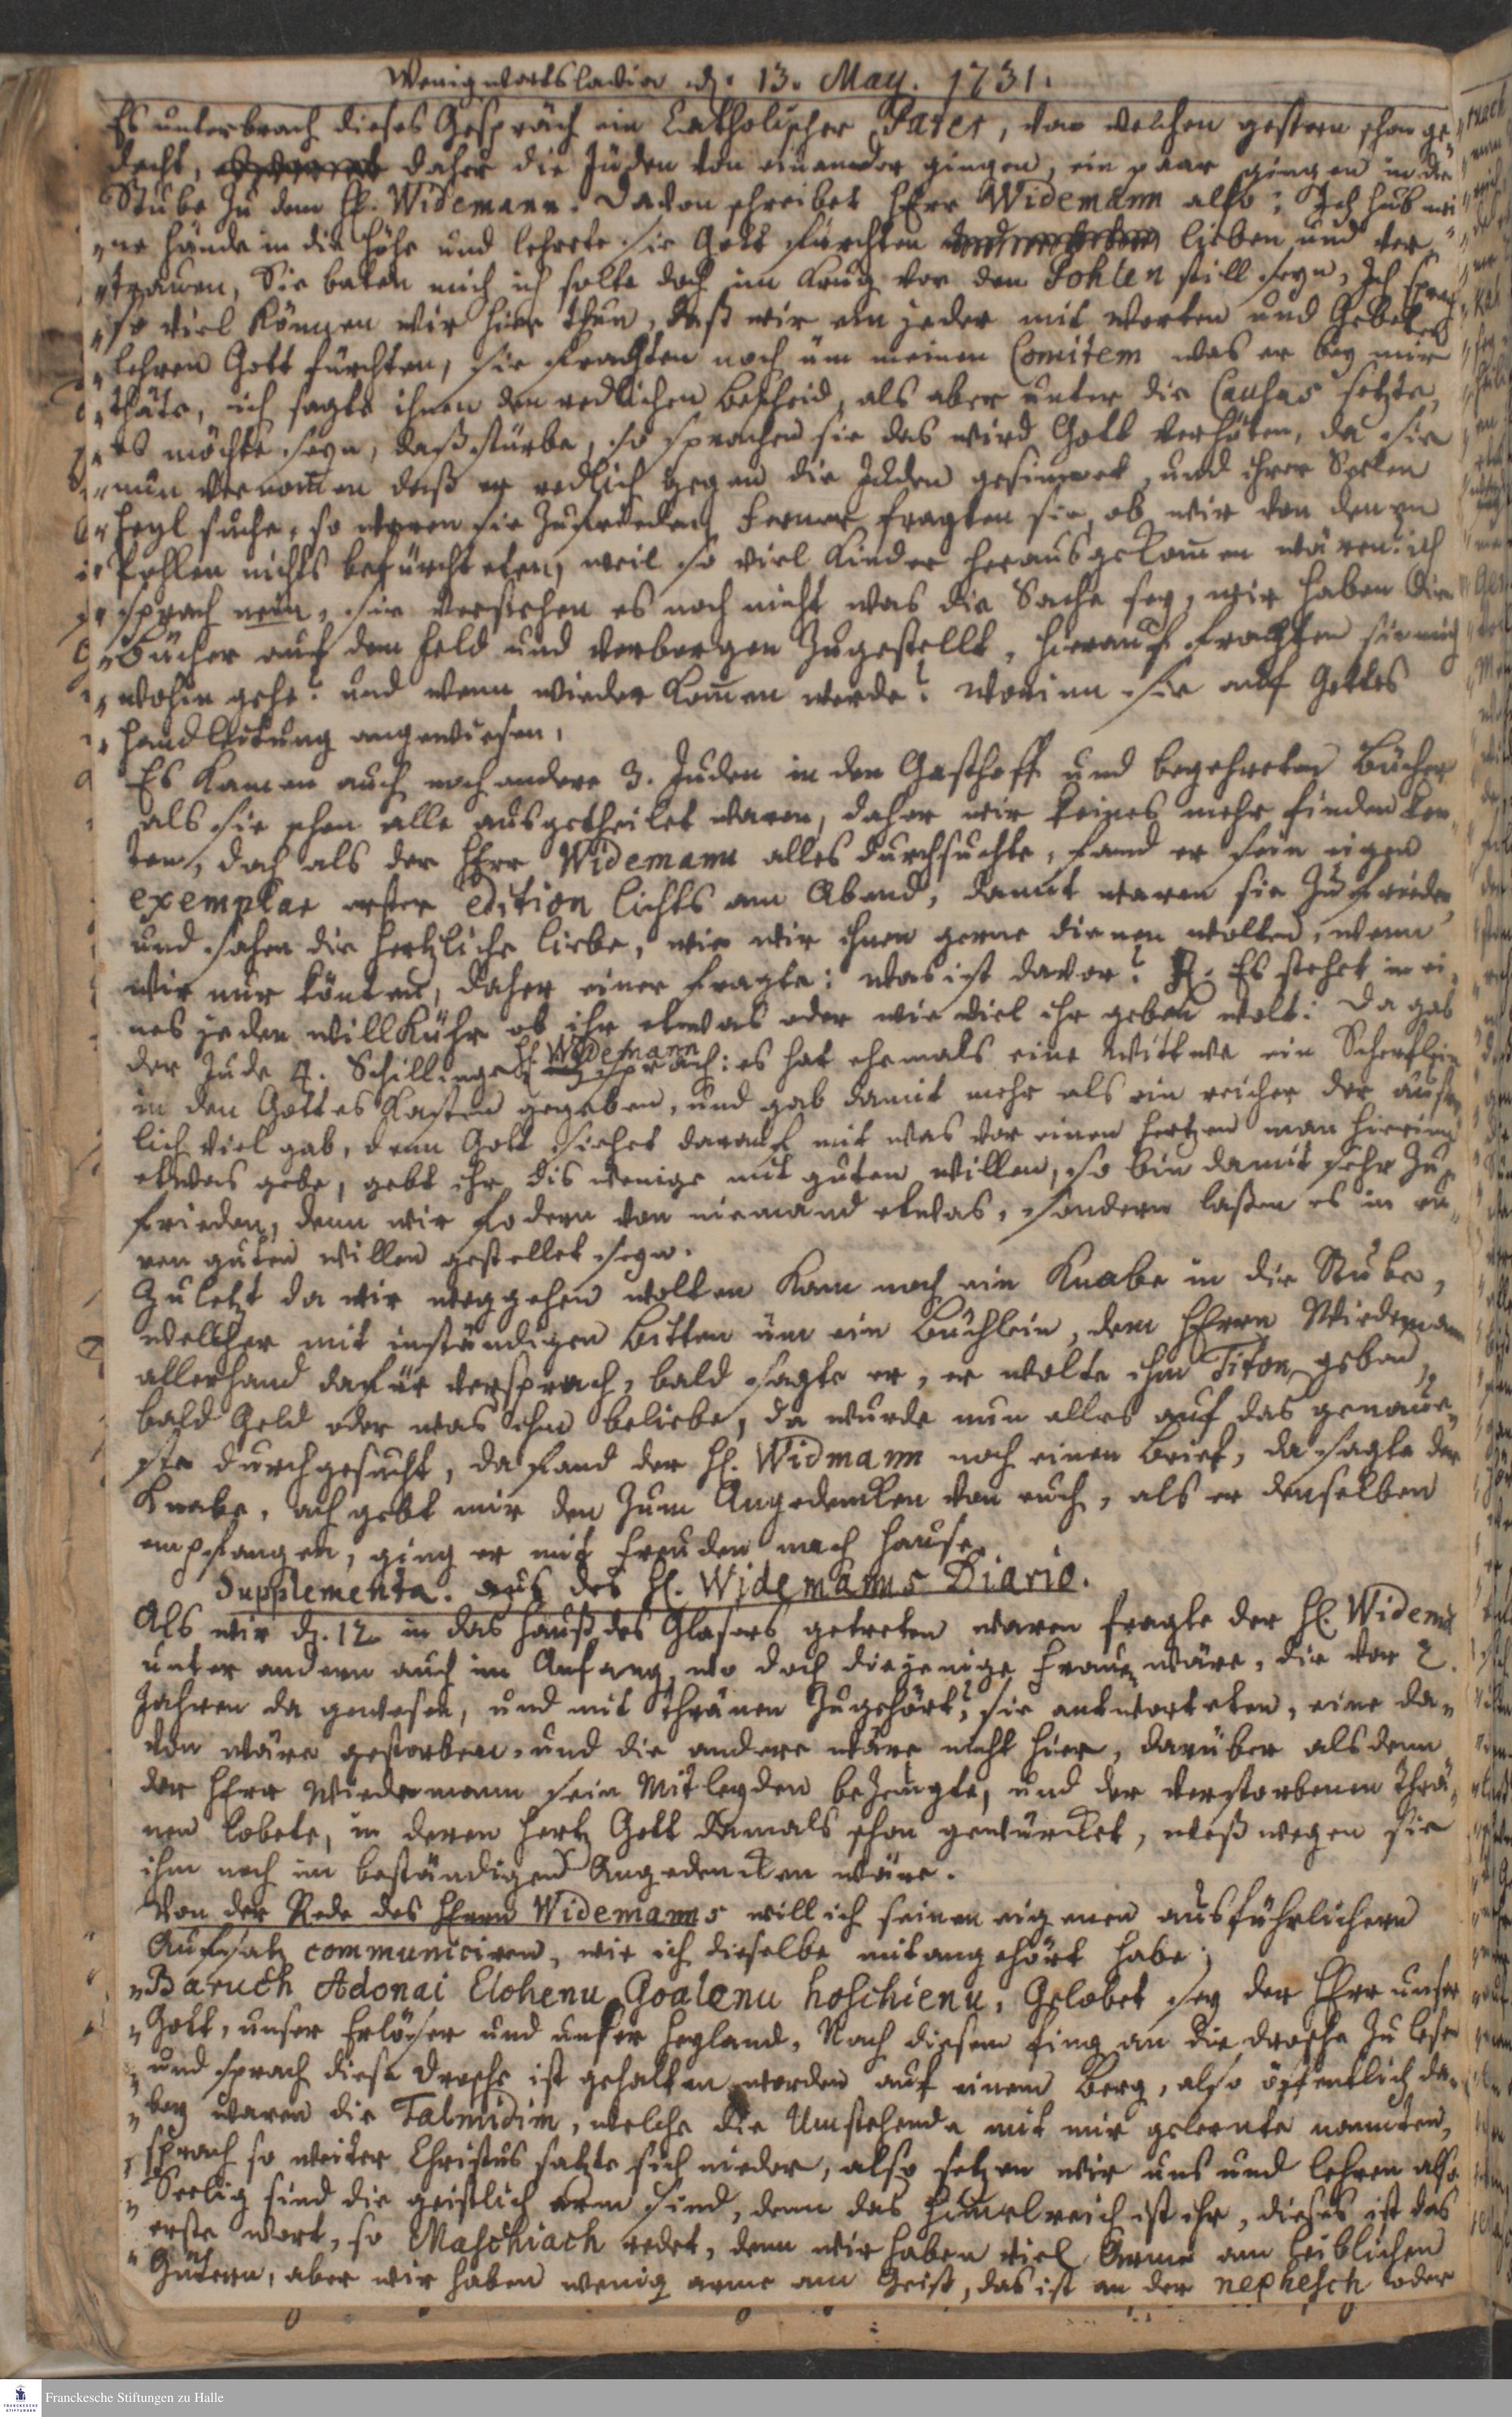 Wenigwortsladia d. 13. May. 1731.
Es unterbrach dieses Gespräch ein Catholischer Pater, von welchen gestern schon ge-
dacht, daher die Juden von einander gingen, ein paar gingen in die
Stube zu dem H. Widemann. Davon schreibet Herr Widemann also: Ich hub mei
„ne Hände in die Höhe und lehrete sie Gott fürchten lieben und ver-
„trauen, Sie baten mich ich solte doch im Krug vor den Pohlen still seyn, Ich sprach
„so viel können wir hier thun, daß wir ein jeder mit Worten und Gebeten
„lehren Gott fürchten, sie frachten noch um meinen Comitem was er bey mir
„thäte, ich sagte ihnen den redlichen Bescheid, als aber unter die Causas setzte,
„es möchte seyn, daß stürbe, so sprachen sie das wird Gott verhüten, da sie
„nun vernom̄en daß er redlich gegen die Juden gesinnet, und ihrer Seelen
„Heyl suche, so waren sie zufrieden, Ferner fragten sie, ob wir von denen
„Pohlen nichts befürchteten, weil so viel Kinder herausgekom̄en wären? ich
„sprach nein, sie verstehen es noch nicht was die Sache sey, wir haben die
„Bücher auf dem Feld und verborgen zugestellt, hierauf frachten sie mich
„wohin gehe? und wenn wieder kom̄en werde? worinn sie auf Gottes
„Handleitung angewiesen.
Es kamen auch noch andere 3. Juden in den Gasthoff und begehreten Bücher
als sie schon alle ausgetheilet waren, daher wir keines mehr finden kon-
ten, doch als der Herr Widemann alles durchsuchte, fand er sein eigen
exemplar erster edition Lichts am Abend, damit waren sie zufrieden,
und sahen die hertzliche Liebe, wie wir ihnen gerne dienen wolten, wenn
wir nur könten, daher einer fragte: was ist davor? R. Es stehet in ei-
nes jeden Willkühr ob ihr etwas oder wie viel ihr geben wolt: Da gab
der Jude 4. Schillinge H. Widemann sprach: es hat ehemals eine Wittwe ein Scherflein
in den Gottes Kasten gegeben, und gab damit mehr als ein reicher der äußer-
lich viel gab, denn Gott siehet darauf mit was vor einen Hertzen man hierinn
etwas gebe, gebt ihr dis wenige mit guten Willen, so bin damit sehr zu-
frieden, denn wir fodern von niemand etwas, sondern laßen es in eu-
ren guten Willen gestellet seyn.
Zuletzt da wir weggehen wolten kam noch ein Knabe in die Stube,
welcher mit inständigen Bitten um ein Büchlein, dem Herrn Wiedemann
allerhand dafür versprach, bald sagte er, er wolte ihm Titon geben,
bald Geld oder was ihm beliebe, da wurde nun alles auf das genaue-
ste durchgesucht, da fand der H. Widmann noch einen Brief, da sagte der
Knabe, ach gebt mir den zum Angedencken von euch, als er denselben
empfangen, ging er mit Freuden nach Hause.
Supplementa. aus des H. Widemanns Diario.
Als wir d. 12. in das Hauß des Glasers getreten waren fragte der H. Widem̄
unter andern auch im Anfang, wo doch diejenige Frauen wäre, die vor 2.
Jahren da gewesen, und mit Thränen zugehört? sie antworteten, eine da-
von wäre gestorben, und die andere wäre nicht hier, darüber alsdenn
der Herr Wiedemann sein Mitleyden bezeugte, und der verstorbenen Thrä-
nen lobete, in deren Hertz Gott damals schon gewürcket, weßwegen sie
ihm noch im beständigen Angedencken wäre.
Von der Rede des Herrn Widemanns will ich seinen eigenen ausführlichern
Aufsatz communiciren, wie ich dieselbe mitangehört habe:
„Baruch Adonai Elohenu, Goalenu hoschienu, Gelobet sey der Herr unser
„Gott, unser Erlöser und unser Heyland, Nach diesem fing an die drosche zu lesen
„und sprach diese drosche ist gehalten worden auf einem Berg, also öffentlich da-
„bey waren die Talmidim, welche die Umstehende mit mir gelernte nannten,
„sprach so weiter Christus satzte sich nieder, also setzen wir uns und lehren also
„Seelig sind die geistlich arm sind, denn das Him̄elreich ist ihr, dieses ist das
„erste Wort, so Maschiach redet, denn wir haben viel Arme am leiblichen
„Gütern, aber wir haben wenig arme am Geist, das ist an der nephesch oder
Franckesche Stiftungen zu Halle